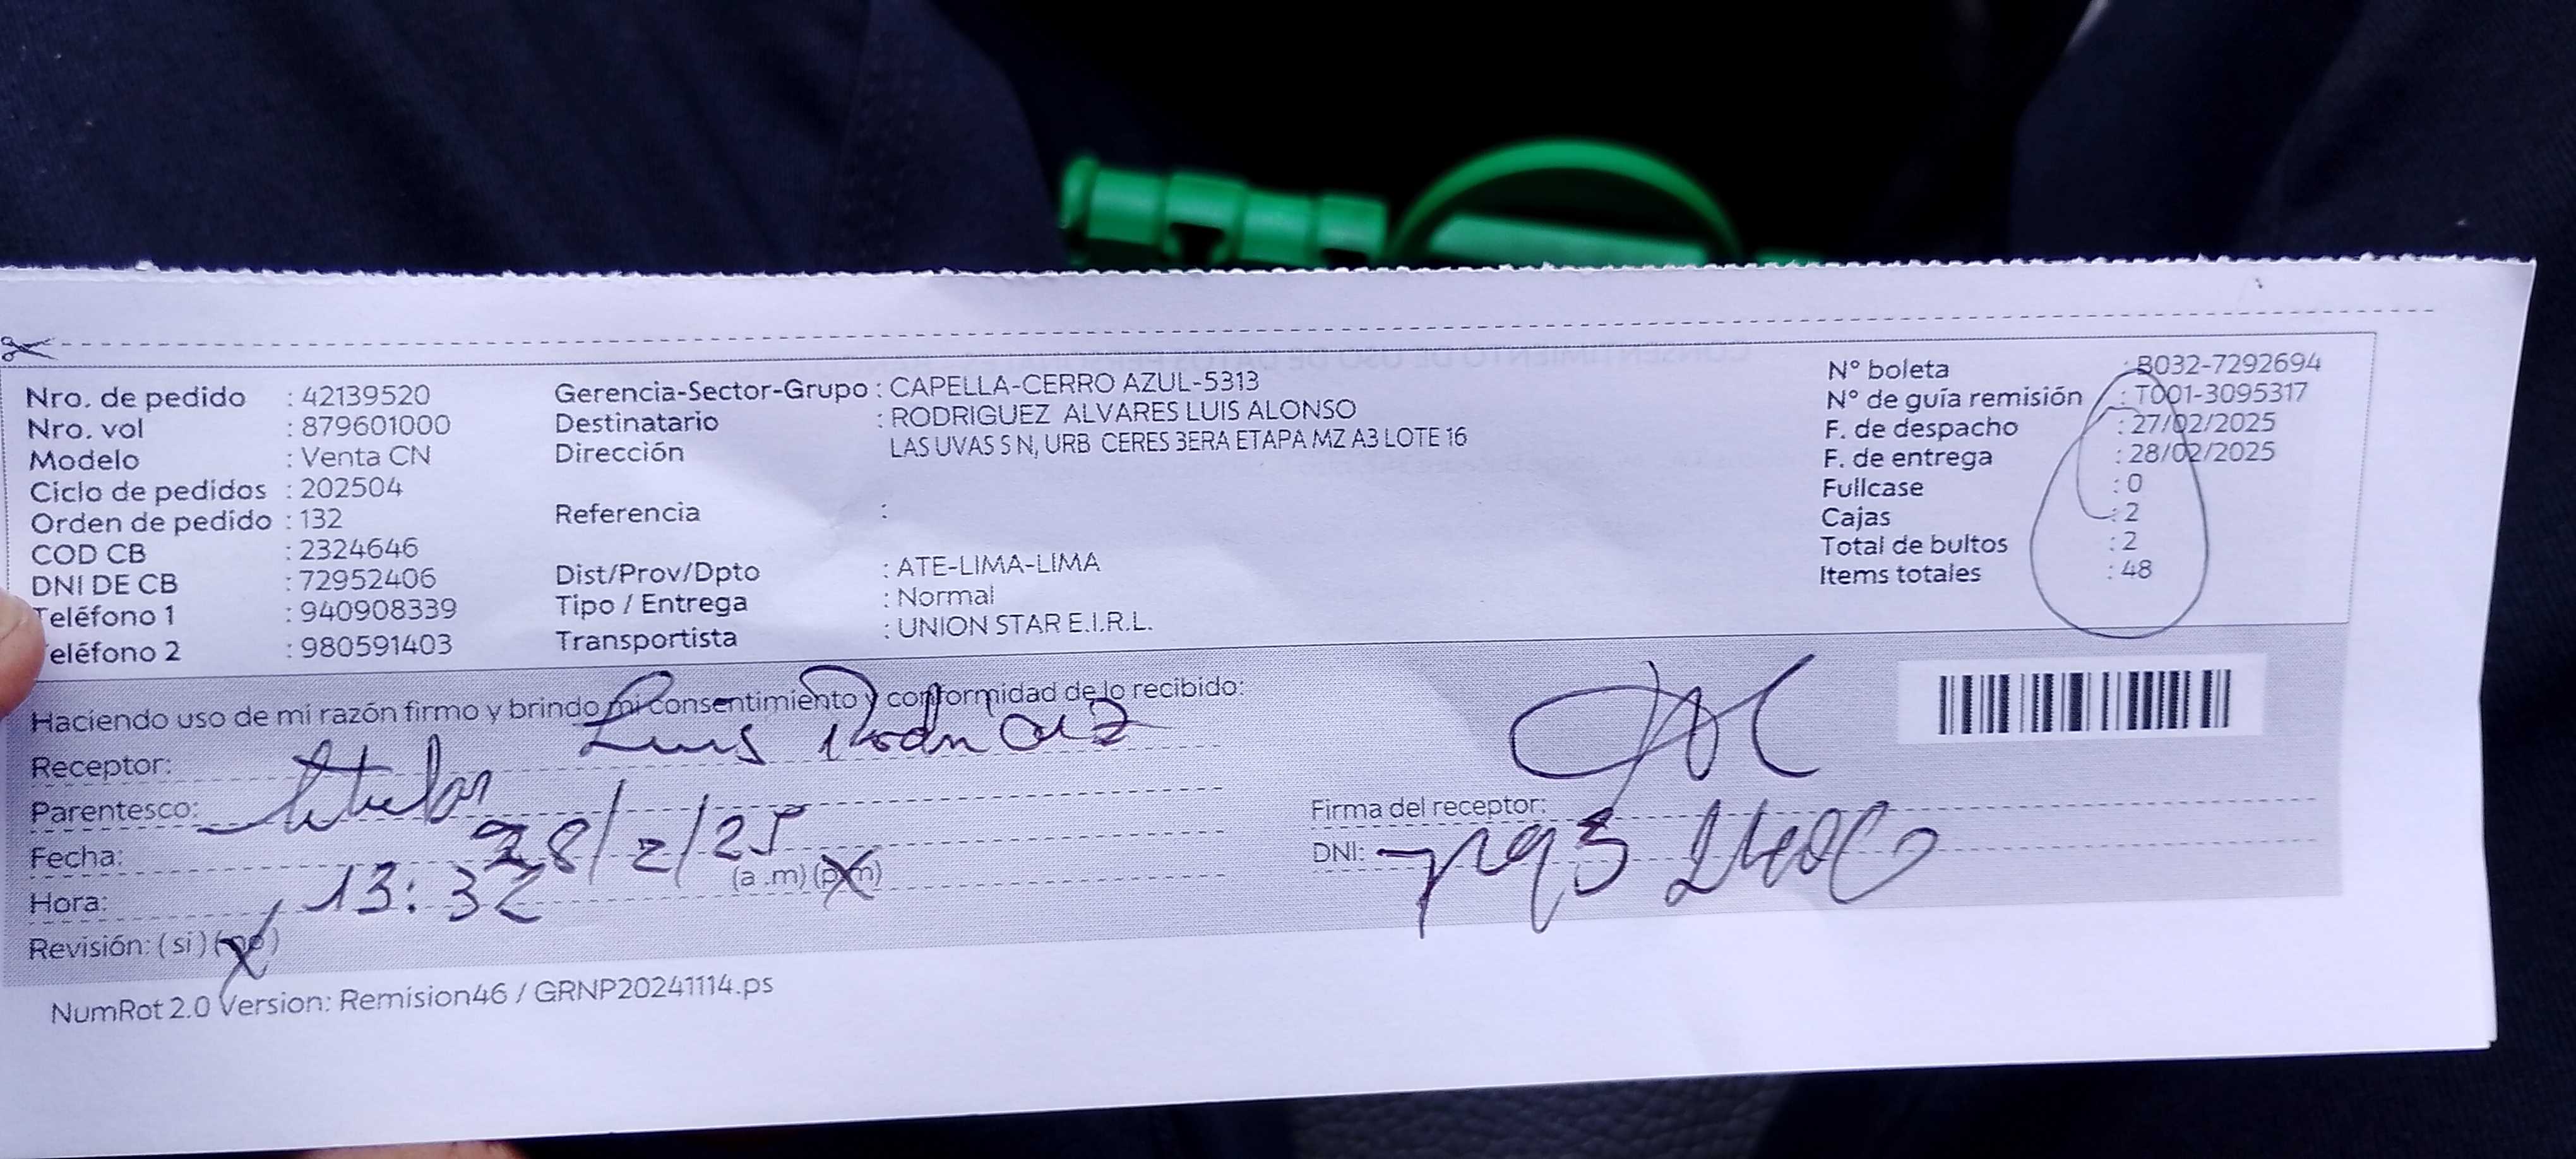 Nro. de pedido : 42139520
Nro. vol : 879601000
Modelo : Venta CN
Ciclo de pedidos : 202504
Orden de pedido : 132
COD CB : 2324646
DNI DE CB : 72952406
Teléfono 1 : 940908339
eléfono 2 : 980591403
Gerencia-Sector-Grupo : CAPELLA-CERRO AZUL-5313
Destinatario : RODRIGUEZ ALVARES LUIS ALONSO
Dirección LAS UVAS S N, URB CERES 3ERA ETAPA MZ A3 LOTE 16
Referencia :
Dist/Prov/Dpto : ATE-LIMA-LIMA
Tipo / Entrega : Normal
Transportista : UNION STAR E.I.R.L.
N° boleta : B032-7292694
N° de guía remisión : T001-3095317
F. de despacho : 27/02/2025
F. de entrega : 28/02/2025
Fullcase : 0
Cajas : 2
Total de bultos : 2
Items totales : 48
Haciendo uso de mi razón firmo y brindo mi consentimiento y conformidad de lo recibido:
Receptor: Luis
Parentesco: titular
Fecha: 28/2/25
Hora: 13:32 (a.m) (p.m)
Revisión: (si) (no)
Firma del receptor:
DNI:
NumRot 2.0 Version: Remision46 / GRNP20241114.ps